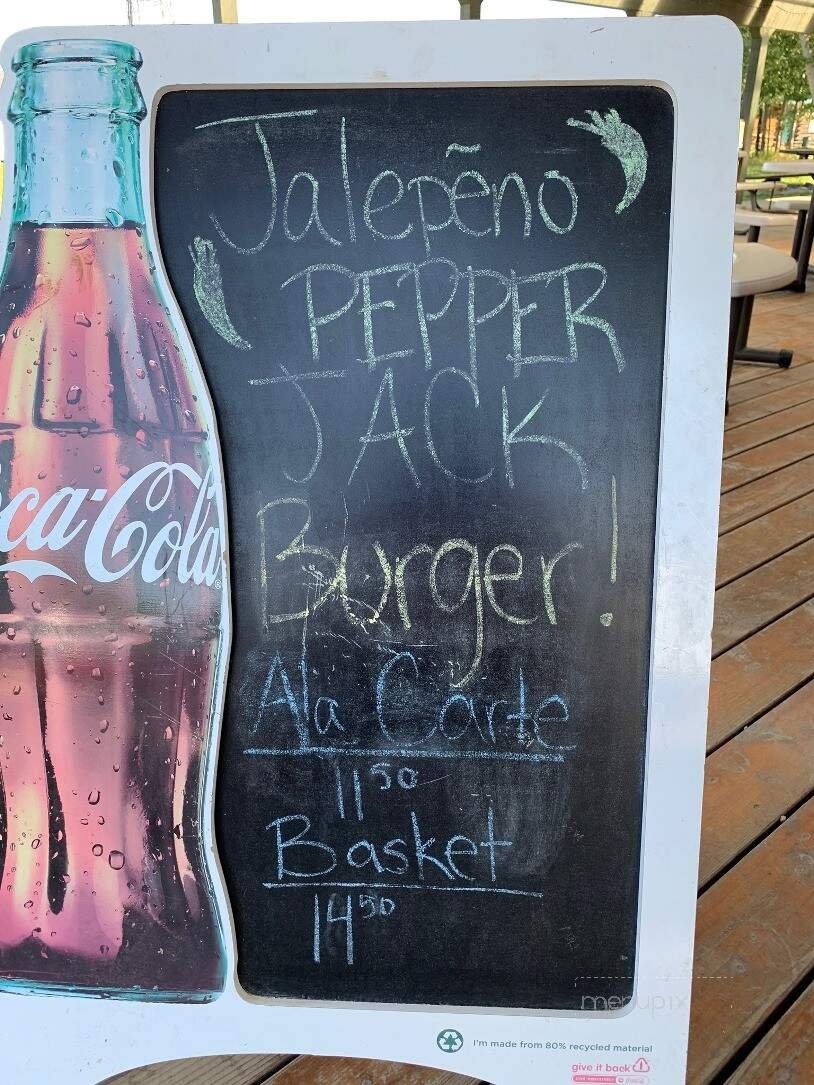 Jalepẽno
PEPPER
JACK
Burger!
Ala Carte
11 50
Basket
14 50
ca-Cola
I'm made from 80% recycled material
give it back
menupix